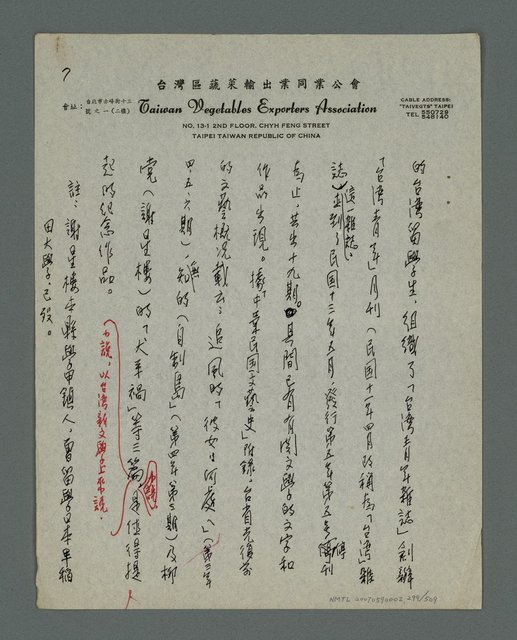 7
台灣區蔬菜輸出業同業公會
會址：台北市赤峰街十三號之一(二樓)
Taiwan Vegetables Exporters Association
NO. 13-1 2ND FLOOR, CHYH FENG STREET
TAIPEI TAIWAN REPUBLIC OF CHINA
CABLE ADDRESS:
"TAIVEGTS" TAIPEI
TEL 550729
548140
的台湾留学生，組織了「台湾青年雜誌」創辦
「台湾青年」月刊（民国十一年四月改稱為「台湾」雜
誌）這一雜誌。
並到了民国十三年五月發行第五年第五号停刊
為止，共出十九期。其間已有有関文學的文字和
作品出現。據「中華民国文藝史」附錄，台省光復前
的文藝概況載云：追風的「彼女は何處へ」（第三年
四、五、六期），無知的（自制島）（第四年第三期）及柳
棠（謝星樓）的「犬羊禍」等三篇，是值得提
起的纪念作品。
小說，以台湾新文學上來說，
註：謝星樓本縣學甲鎮人，曾留學日本早稲
田大學，已殁。
NMTL 20070590002, 299/509